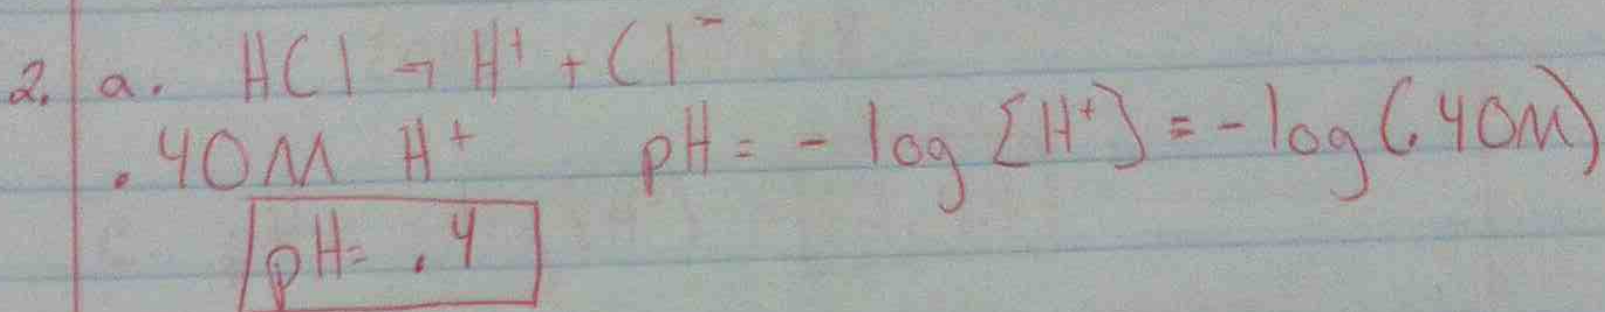 2. a. HCl → H⁺ + Cl⁻
.40M H⁺ pH = - log [H⁺] = - log (.40M)
pH = .4